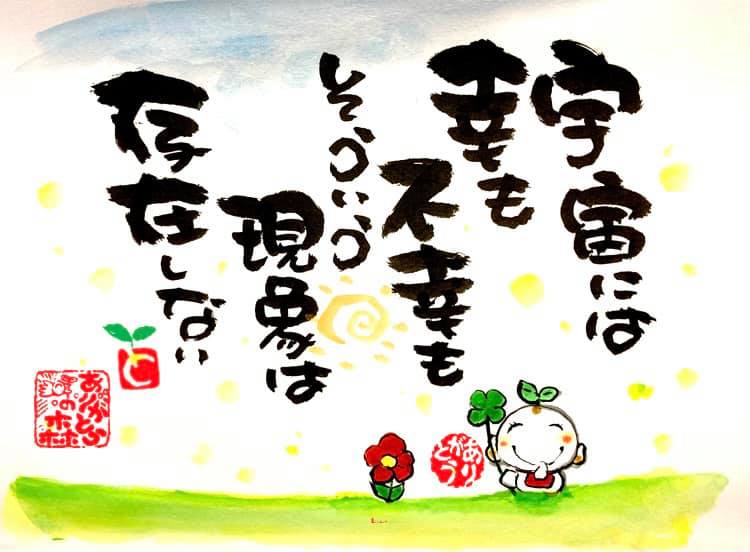 宇宙には
幸も
不幸も
そういう
現象は
存在しない
ありがとう
ありがとう
の森